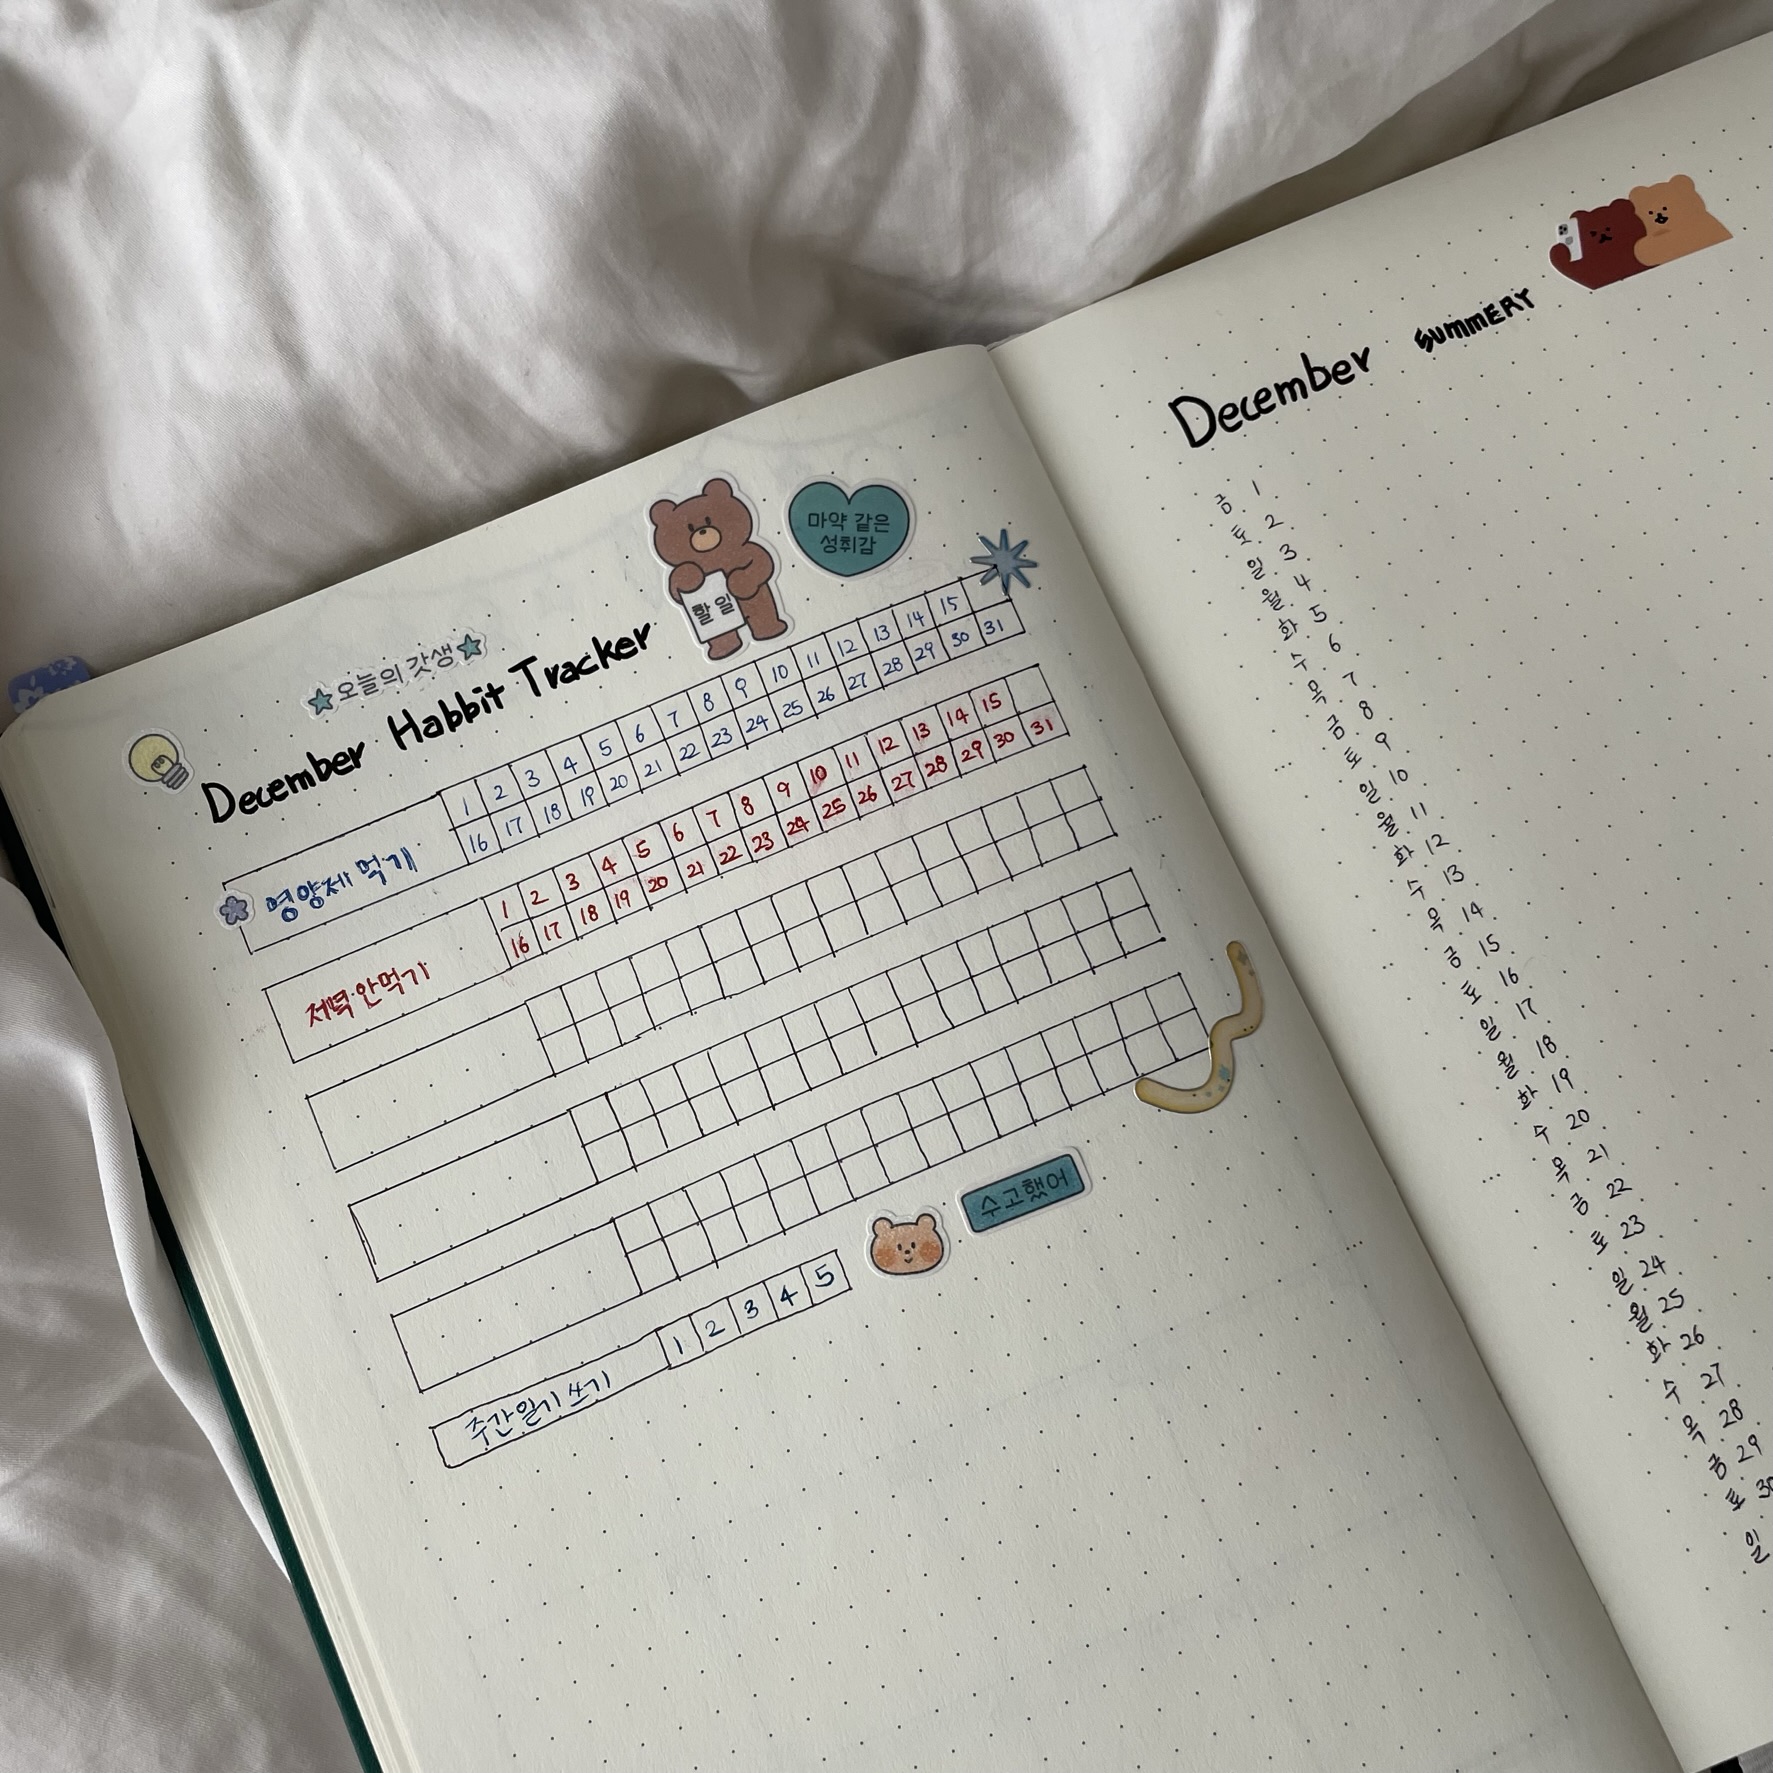 ★오늘의 갓생★
December Habbit Tracker
할일
마약 같은
성취감
영양제 먹기
1 2 3 4 5 6 7 8 9 10 11 12 13 14 15
16 17 18 19 20 21 22 23 24 25 26 27 28 29 30 31
저녁 안먹기
1 2 3 4 5 6 7 8 9 10 11 12 13 14 15
16 17 18 19 20 21 22 23 24 25 26 27 28 29 30 31
주간일기 쓰기 1 2 3 4 5
수고했어
December SUMMERY
금 1
토 2
일 3
월 4
화 5
수 6
목 7
금 8
토 9
일 10
월 11
화 12
수 13
목 14
금 15
토 16
일 17
월 18
화 19
수 20
목 21
금 22
토 23
일 24
월 25
화 26
수 27
목 28
금 29
토 30
일